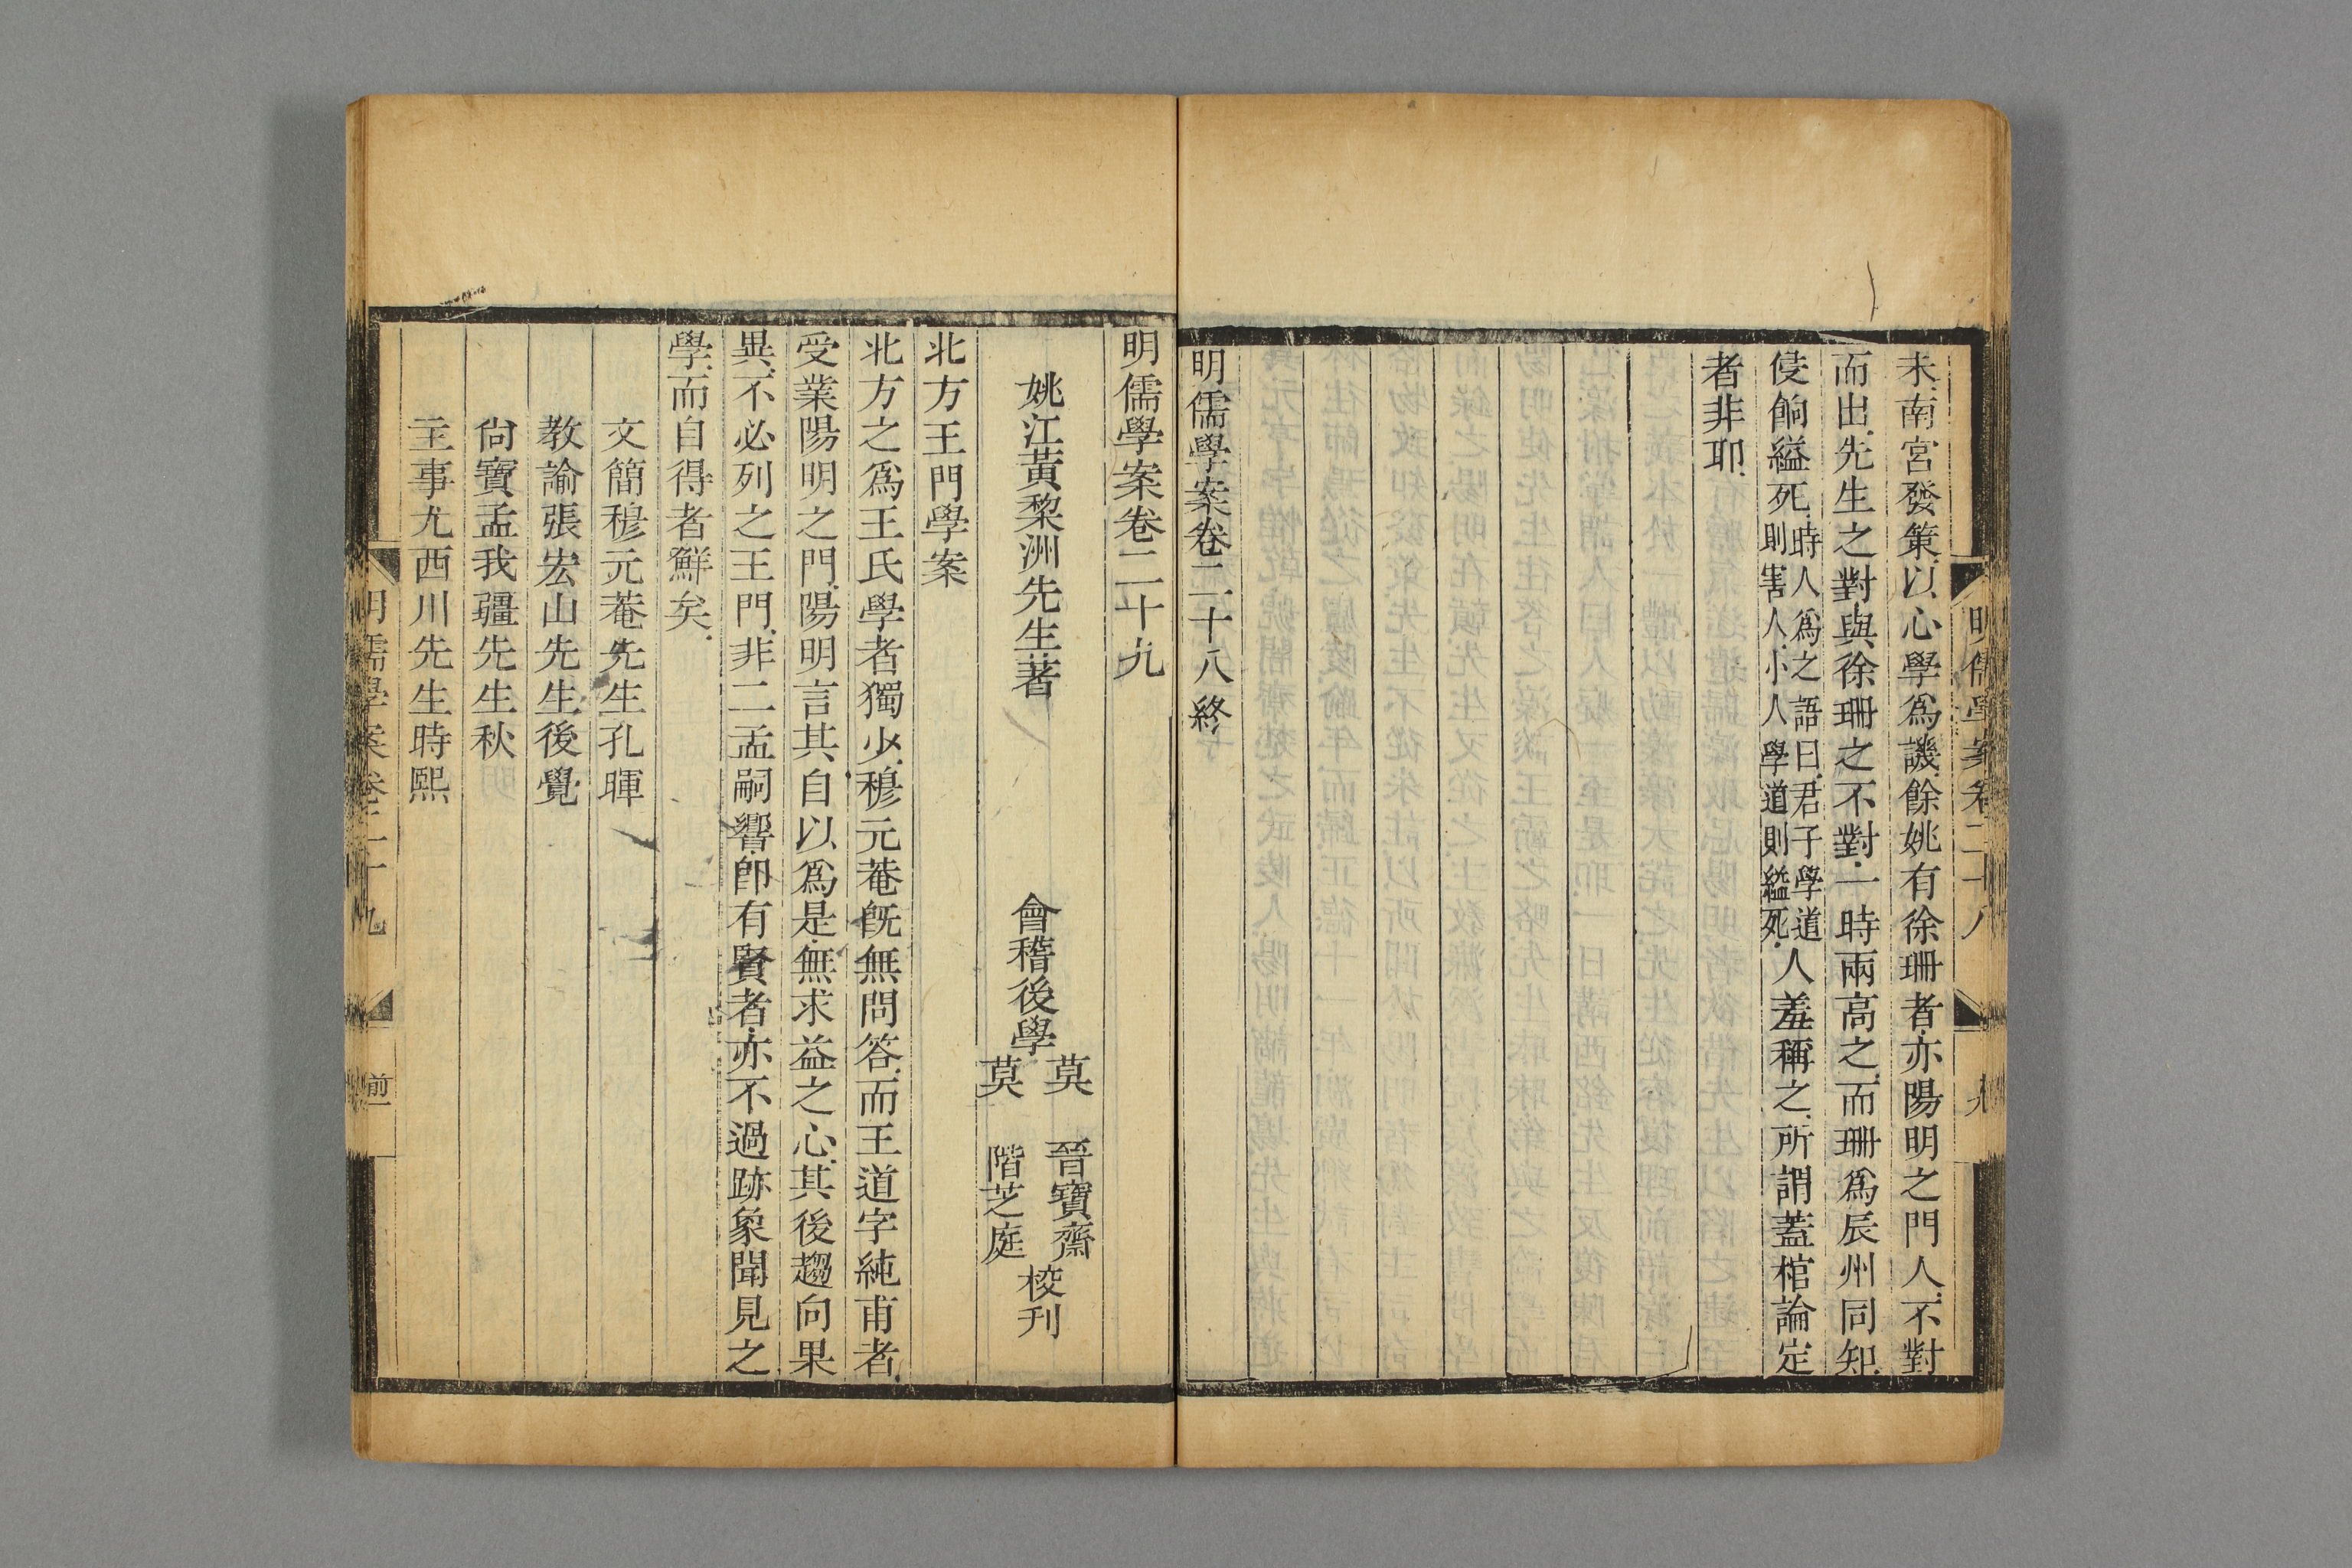 明儒學案卷二十八
九
未南宮發策以心學爲譏餘姚有徐珊者亦陽明之門人不對
而出先生之對與徐珊之不對一時兩高之而珊爲辰州同知
侵餉縊死時人爲之語曰君子學道
則害人小人學道則縊死人羞稱之所謂蓋棺論定
者非耶
明儒學案卷二十八終
明儒學案卷二十九
姚江黃棃洲先生著
會稽後學
莫 晉寶齋
莫 階芝庭
校刊
北方王門學案
北方之爲王氏學者獨少穆元菴旣無問答而王道字純甫者
受業陽明之門陽明言其自以爲是無求益之心其後趨向果
異不必列之王門非二孟嗣響卽有賢者亦不過跡象聞見之
學而自得者鮮矣
文簡穆元菴先生孔暉
教諭張宏山先生後覺
尙寶孟我疆先生秋
主事尤西川先生時熙
明儒學案卷二十九
前一